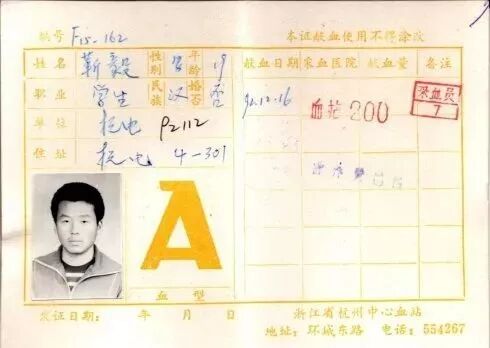 编号 F15-162
本证献血使用不得涂改
姓名 靳毅 性别 男 年龄 19
职业 学生 民族 汉 婚否 否
单位 机电 92112
住址 机电 4-301
献血日期 采血医院 献血量 备注
92.12.16 血站 200 采血员 7
A
血型
发证日期: 年 月 日
浙江省杭州中心血站
地址:环城东路 电话:554267